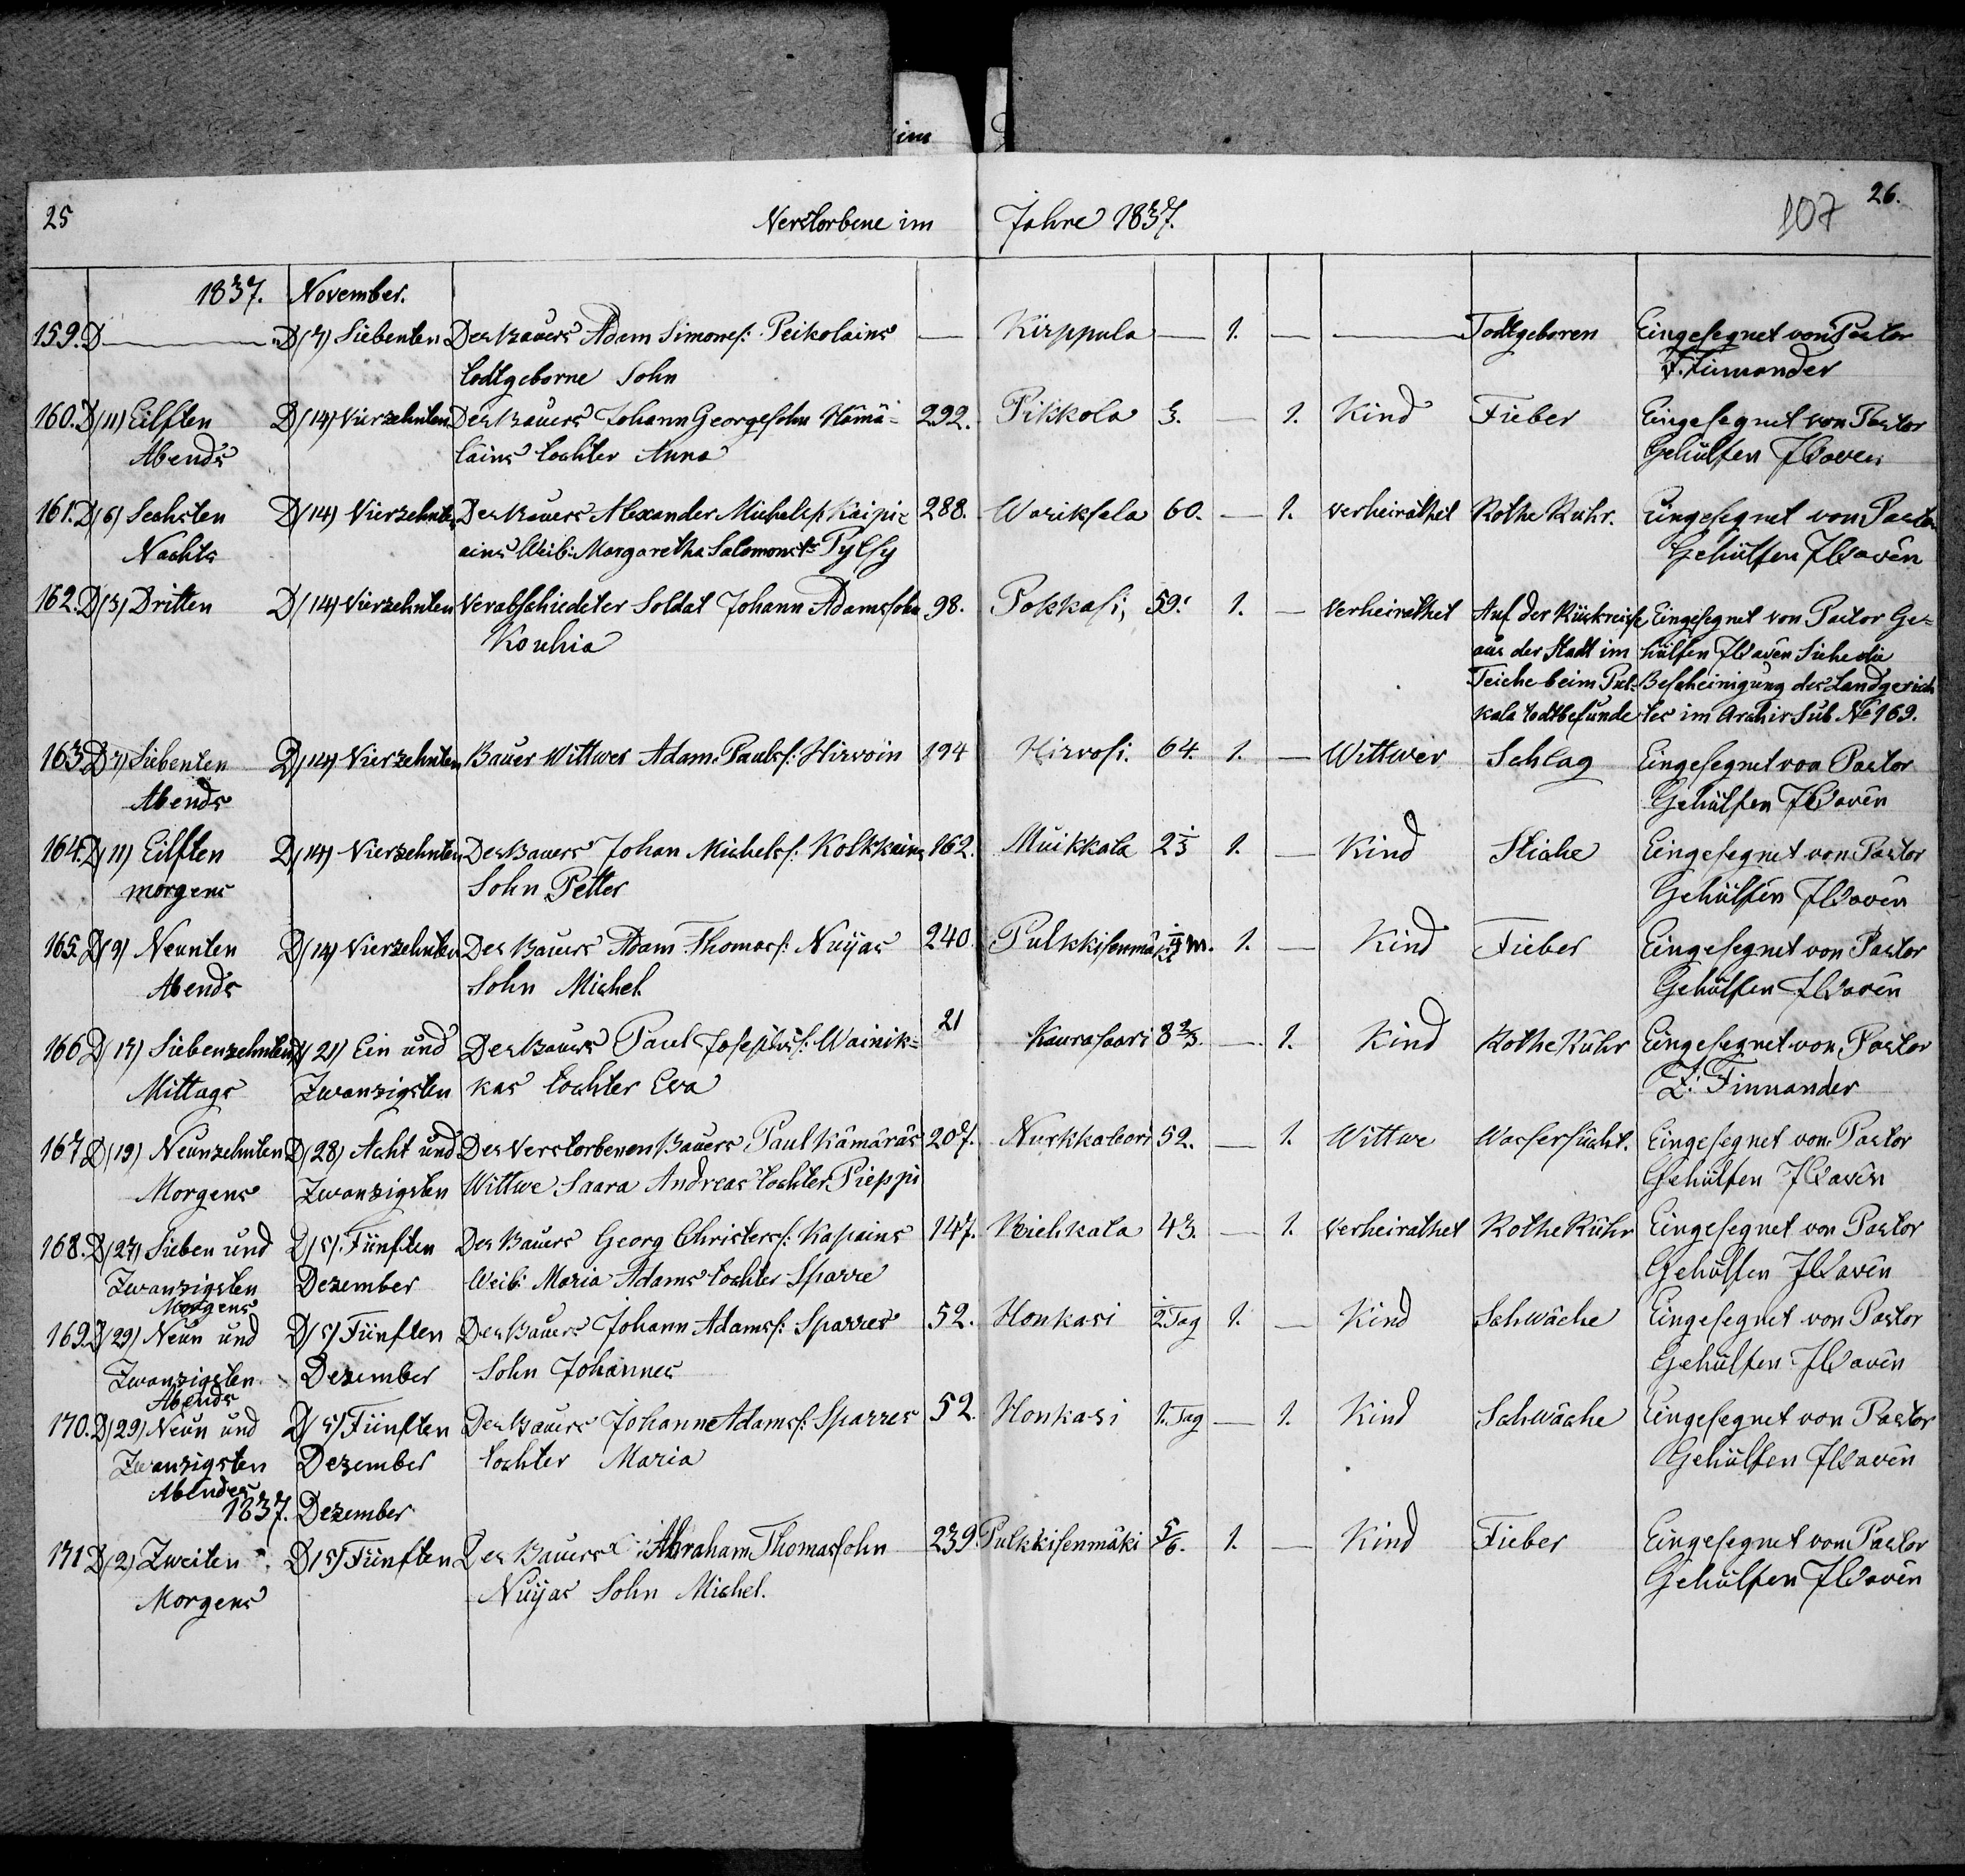 im
25
Verstorbene im Jahre 1837.
107
26.
1837. November.
159. D — D (7) Siebenten Des Bauers Adam Simonsſ: Peikolains — Kirppula — 1. — — Todtgeboren Eingesegnet von Pastor
todtgeborne Sohn
160. D (11) Eilften D (14) Vierzehnten Des Bauers Johann Georgsſohn Hämä- 292. Pikkola 3. — 1. Kind Fieber Eingeſegnet von Pastor
Abends lains tochter Anna Gehülfen
161. D (6) Sechsten D (14) Vierzehnten Des Bauers Alexander Michelsſ: Käipi- 288. Warikſela 60. — 1. verheirathet Rothe Ruhr. Eingeſegnet von Pastor
Nachts ains Weib: Margaretha Salomonst: Pylſy Gehülfen
162. D (3) Dritten D (14) Vierzehnten Verabſchiedeter Soldat Johann Adamsſohn 98. Pokkaſi, 59. 1. — Verheirathet Auf der Rückreiſe Eingeſegnet von Pastor Ge-
Kouhia aus der Stadt im hülfen Siehe die
Teiche beim Pul- Beſcheinigung des Landgerich
kala todtbefunde tes im Archiv Sub No 169.
163 D (7) Siebenten D (14) Vierzehnten Bauer Wittwer Adam Paulsſ: Hirvoin 194 Hirvoſi. 64. 1. — Wittwer Schlag Eingeſegnet von Pastor
Abends Gehülfen
164. D (11) Eilften D (14) Vierzehnten Des Bauers Johan Michelsſ: Kolkkains 162. Muikkala 2 1/3 1. — Kind Stiche Eingeſegnet von Pastor
morgens Sohn Petter Gehülfen
165. D (9) Neunten D (14) Vierzehnten Des Bauers Adam Thomasſ: Nuijas 240. Pulkkiſenmä m. 1. — Kind Fieber Eingeſegnet von Pastor
Abends Sohn Michel Gehülfen
166 D (17) Siebenzehnten D (21) Ein und Des Bauers Paul Joſephsſ: Wainik- 21 Kauraſaari 8 2/3. — 1. Kind Rothe Ruhr Eingeſegnet von Pastor
Mittags Zwanzigsten kas tochter Eva Finnander
167 D (19) Neunzehnten D (28) Acht und Des Verstorbenen Bauers Paul Kämäräs 207. 52. — 1. Wittwe Waſſerſücht. Eingeſegnet von Pastor
Morgens Zwanzigsten Wittwe Saara Andreas tochter Pieppi Gehülfen
168. D (27) Sieben und D (5). Fünften Des Bauers Georg Christersſ: Kapains 147. Riehkala 43. — 1. Verheirathet Rothe Ruhr Eingeſegnet von Pastor
Zwanzigsten Dezember Weib: Maria Adams tochter Sparre Gehülfen
Morgens
169. D (29) Neun und D (5) Fünften Des Bauers Johann Adamsſ: Sparres 52. Honkasi 2 Tag 1. — Kind Schwäche Eingeſegnet von Pastor
Zwanzigsten Dezember Sohn Johannes Gehülfen
Abends
170. D (29) Neun und D (5) Fünften Des Bauers Johann Adamsſ: Sparres 52. Honkasi 1. Tag — 1. Kind Schwäche Eingeſegnet von Pastor
Zwanzigsten Dezember tochter Maria Gehülfen
Abendes
1837. Dezember
171 D (2) Zweiten D (5) Fünften Des Bauers Abraham Thomasſohn 239 Pulkkiſenmäki 5/6. 1. — Kind Fieber Eingeſegnet von Pastor
Morgens Nuijas Sohn Michel. Gehülfen